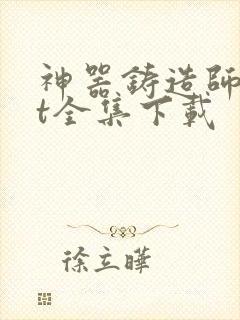 神器铸造師
t全集下載
徐立曄